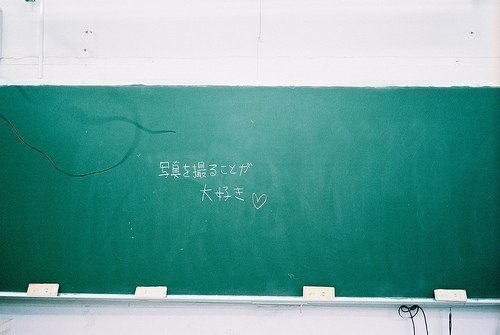 写真を撮ることが
大好き♡